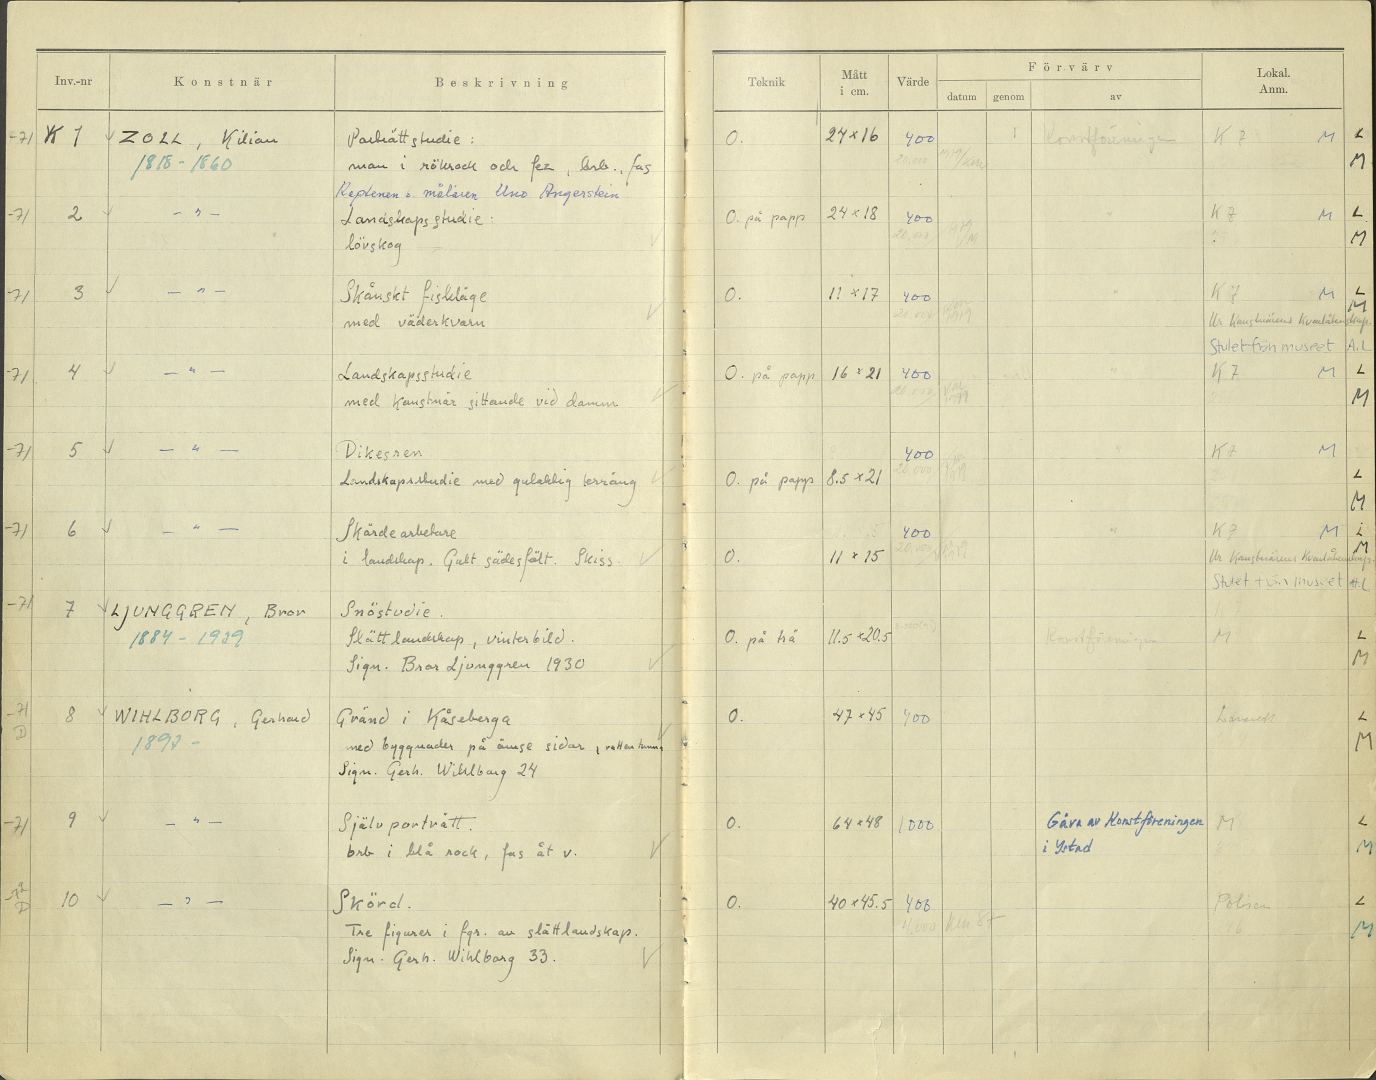 Inv.-nr Konstnär Beskrivning Teknik Mått i cm. Värde Förvärv Lokal. Anm.
datum genom av
-71 K 1 ZOLL, Kilian Porträttstudie: O. 24×16 400 Konstföreningen K 7 M L
1818-1860 man i rökrock och fez, brb., fas 20.000 M
Kaptenen o. målaren Uno Angerstein
-71 2 - " - Landskapsstudie: O. på papp 24×18 400 " K 7 M L
lövskog 20.000 M
-71 3 - " - Skånskt fiskläge O. 11×17 400 " K 7 M L
med väderkvarn 20.000 M
Ur Konstnärens Kvarlåtenskap.
Stulet från museet A.L
-71 4 - " - Landskapsstudie O. på papp 16×21 400 " K 7 M L
med konstnär sittande vid damm 20.000 M
-71 5 - " - Dikesren 400 " K 7 M
Landskapsstudie med gulaktig terräng O. på papp 8.5×21 20.000 L
M
-71 6 - " - Skördearbetare 400 " K 7 M L
i landskap. Gult sädesfält. Skiss O. 11×15 20.000 M
Ur Konstnärens Kvarlåtenskap.
Stulet från museet A.L
-71 7 LJUNGGREN, Bror Snöstudie. K 7
1884-1939 Slättlandskap, vinterbild. O. på trä 11.5×20.5 Konstföreningen M L
Sign. Bror Ljunggren 1930 M
-71 8 WIHLBORG, Gerhard Gränd i Kåseberga O. 47×45 400 L
D 1893- med byggnader på ömse sidor, vattentunna M
Sign. Gerh. Wihlborg 24
-71 9 - " - Självporträtt. O. 64×48 1000 Gåva av Konstföreningen M L
brb i blå rock, fas åt v. i Ystad M
10 - " - Skörd. O. 40×45.5 400 Polisen L
D Tre figurer i fgr. av slättlandskap. 4.000 87 M
Sign. Gerh. Wihlborg 33.